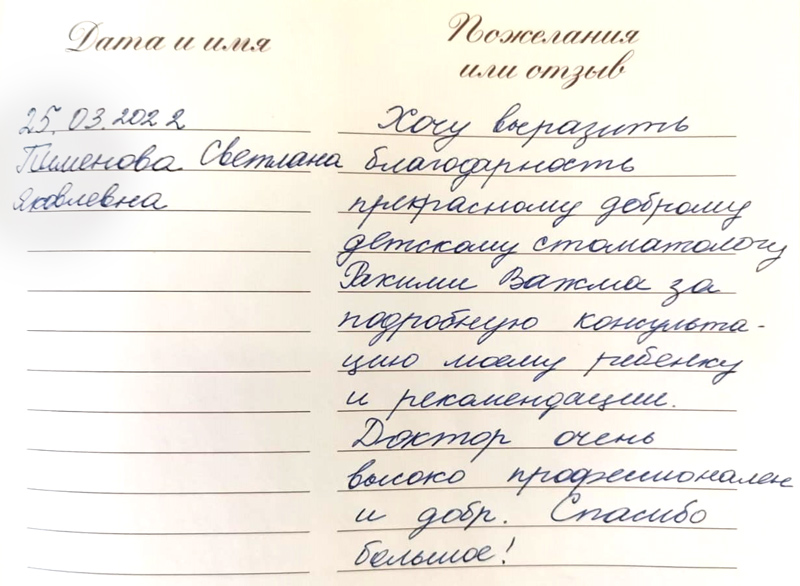 Дата и имя
Пожелания
или отзыв
25.03.2022
Пименова Светлана
Яковлевна
Хочу выразить
благодарность
прекрасному доброму
детскому стоматологу
Рахими Важма за
подробную консульта-
цию моему ребенку
и рекомендации.
Доктор очень
высоко профессионален
и добр. Спасибо
большое!